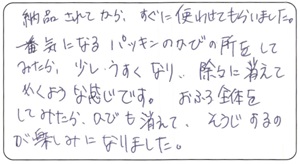 納品されてから、すぐに使わせてもらいました。
一番気になるパッキンのひびの所をして
みたら、少しうすくなり、除々に消えて
いくような感じです。 おふろ全体を
してみたら、ひびも消えて、そうじするの
が楽しみになりました。